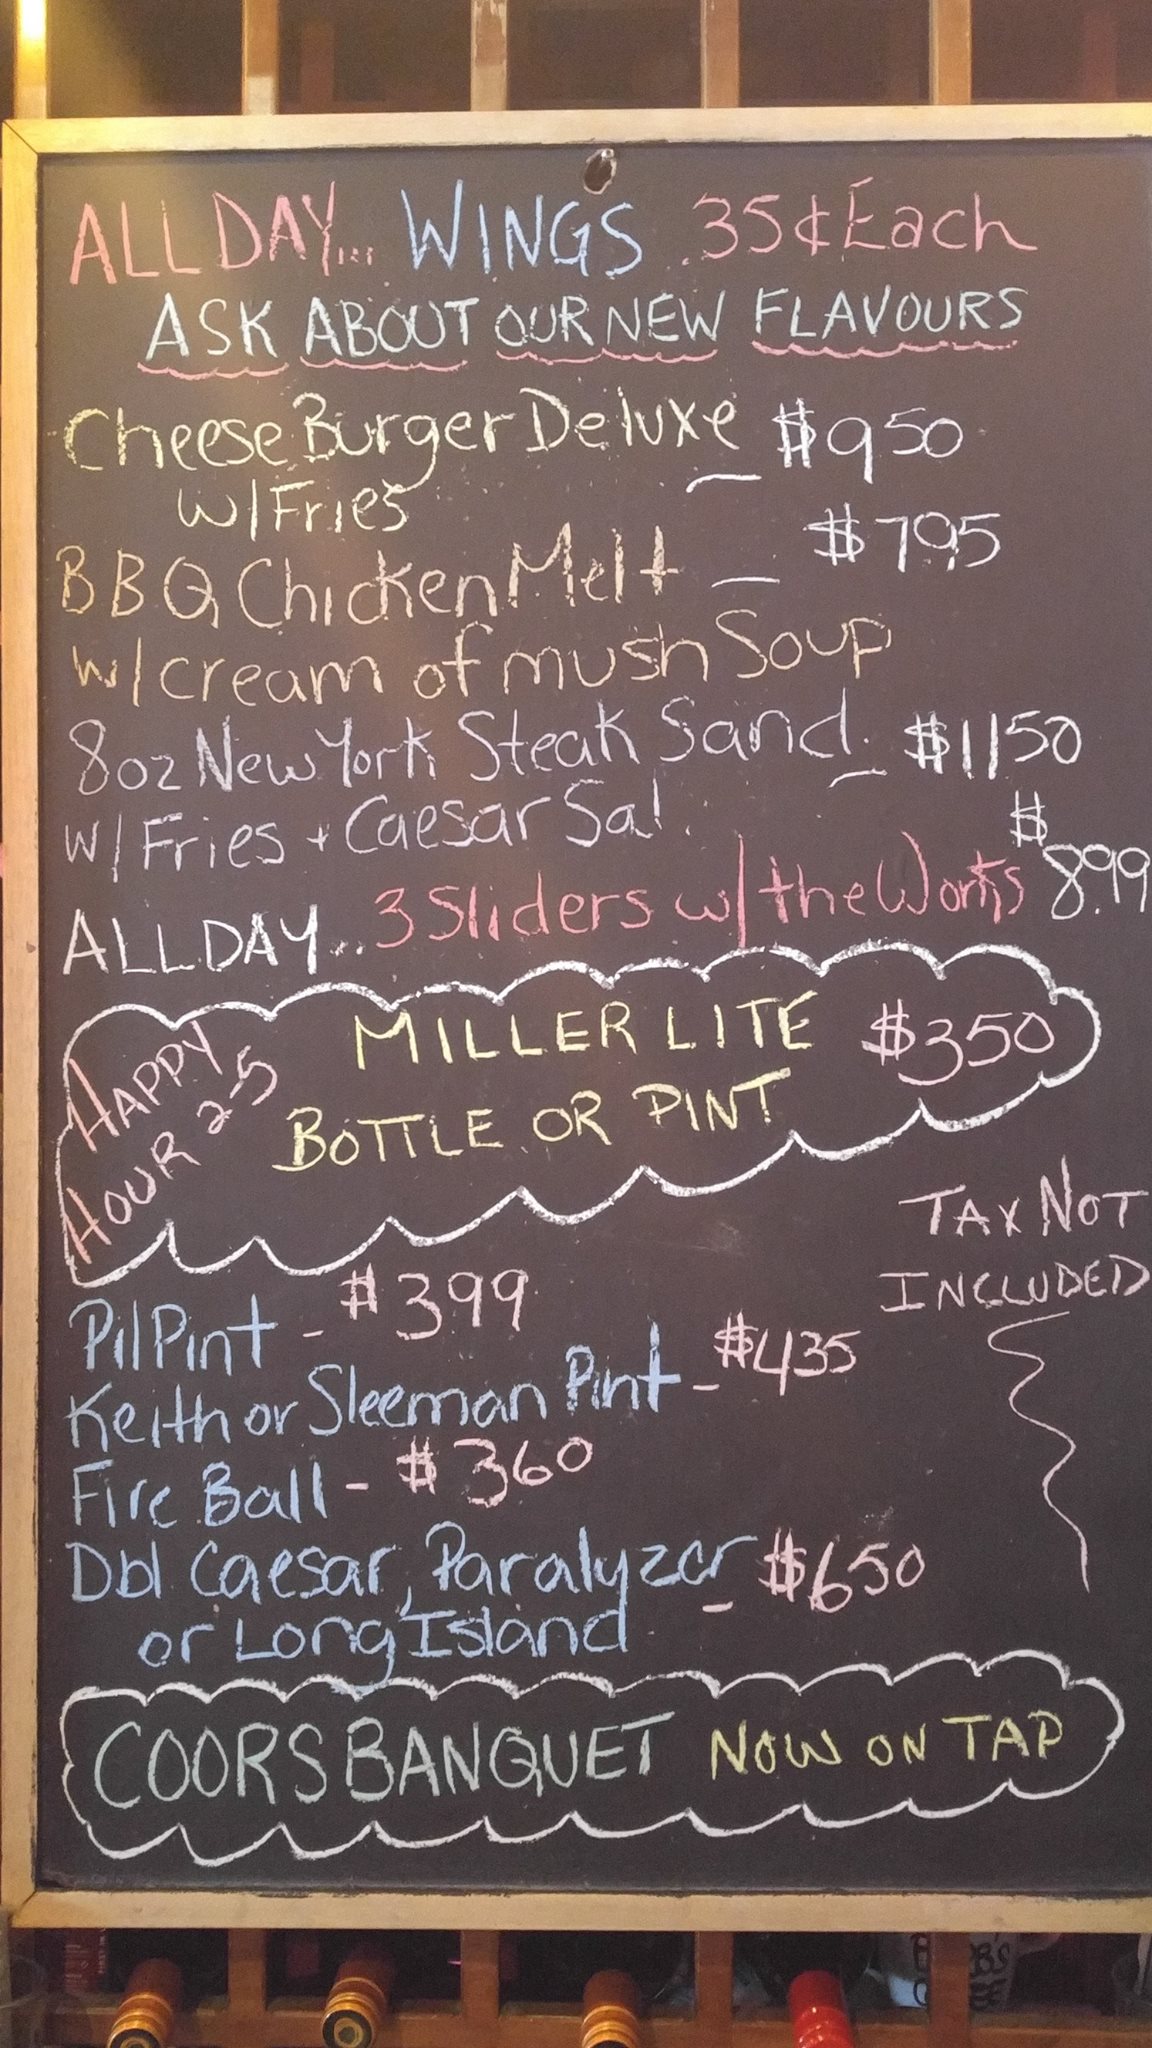 ALL DAY... WINGS .35¢ Each
ASK ABOUT OUR NEW FLAVOURS
Cheese Burger Deluxe - $950
W/Fries
BBQ Chicken Melt - $795
w/cream of mush Soup
8oz New York Steak Sand. - $1150
W/Fries + Caesar Sal.
ALL DAY... 3 Sliders w/the Works $8.99
HAPPY HOUR 2-5
MILLER LITE $350
BOTTLE OR PINT
TAX NOT
INCLUDED
Pil Pint - $399
Keith or Sleeman Pint - $435
Fire Ball - $360
Dbl Caesar, Paralyzer - $650
or Long Island
COORS BANQUET NOW ON TAP